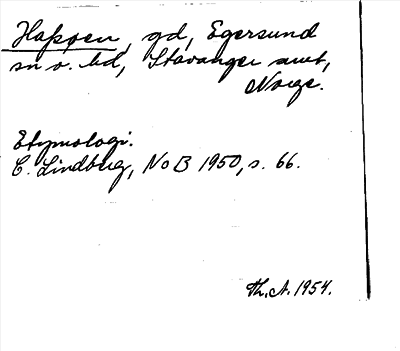 Haßøen, gd, Egersund
sn o. hd, Stavanger amt,
Norge.
Etymologi.
C. Lindberg, NoB 1950, s. 66.
Th. A. 1954.